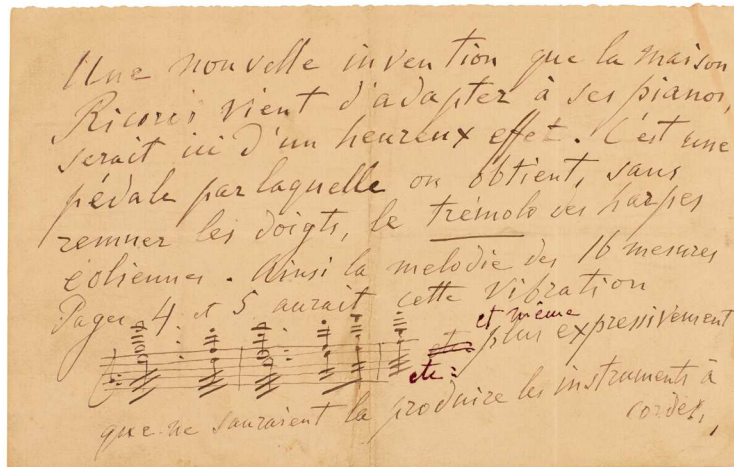 Une nouvelle invention que la maison
Ricorés vient d'adapter à ses pianos,
serait ici d'un heureux effet. C'est une
pédale par laquelle on obtient, sans
remuer les doigts, le trémolo des harpes
éoliennes. Ainsi la melodie des 16 mesures
Pages 4 et 5 aurait cette vibration
et même
plus expressivement
etc:
que ne sauraient la produire les instruments à
cordes,